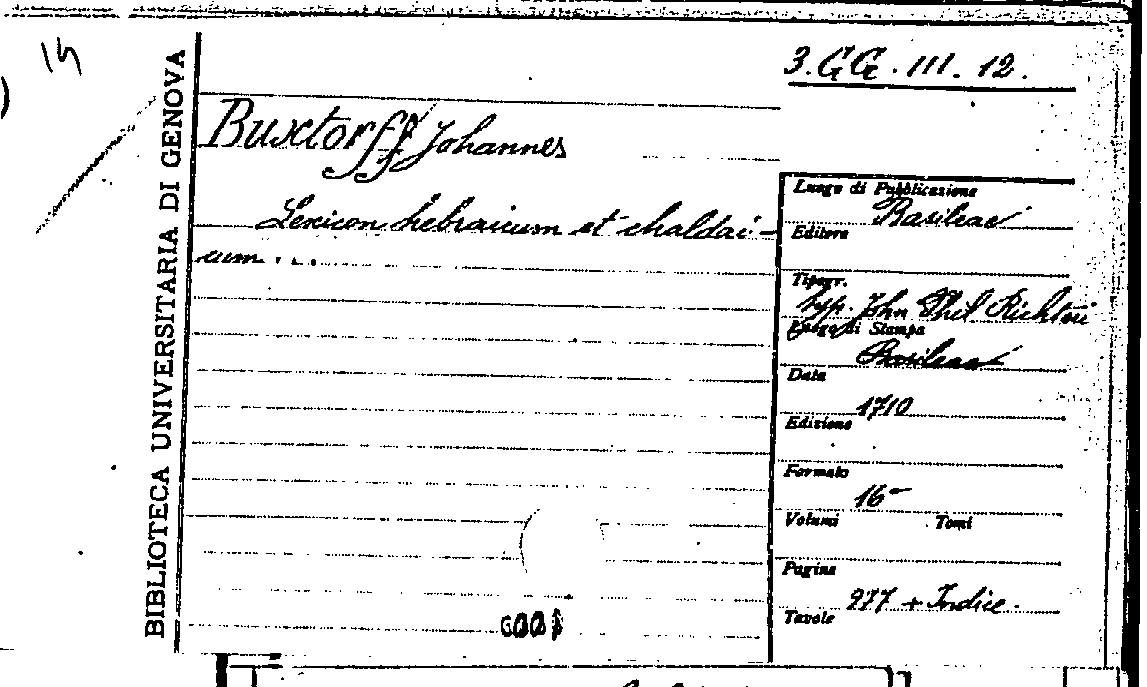 14
BIBLIOTECA UNIVERSITARIA DI GENOVA
3.GG.III.12.
Buxtorff Johannes
Lexicon hebraicum et chaldai-
cum...
Luogo di Pubblicazione
Basileae
Editore
Tipogr.
typ. John Phil Richteri
Luogo di Stampa
Basileae
Data
1710
Edizione
Formato
16°
Volumi Tomi
Pagine
977 + Indice.
Tavole